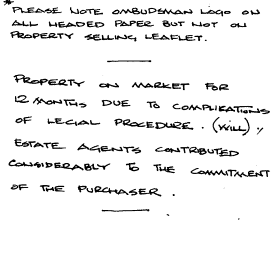 * PLEASE NOTE OMBUDSMAN LOGO ON
ALL HEADED PAPER BUT NOT ON
PROPERTY SELLING LEAFLET.
PROPERTY ON MARKET FOR
12 MONTHS DUE TO COMPLICATIONS
OF LEGAL PROCEDURE. (WILL)
ESTATE AGENTS CONTRIBUTED
CONSIDERABLY TO THE COMMITMENT
OF THE PURCHASER.